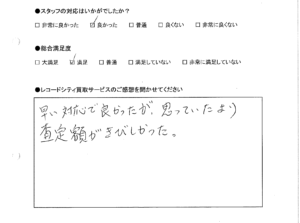 ●スタッフの対応はいかがでしたか？
□非常に良かった ☑良かった □普通 □良くない □非常に良くない
●総合満足度
□大満足 ☑満足 □普通 □満足していない □非常に満足していない
●レコードシティ買取サービスのご感想を聞かせてください
早い対応で良かったが、思っていたより
査定額がきびしかった。